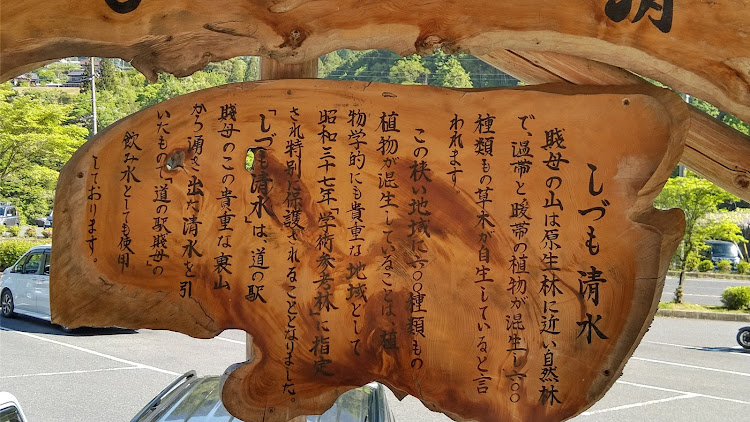 しづも清水
賤母の山は原生林に近い自然林
で、温帯と暖帯の植物が混生し六〇〇
種類もの草木が自生していると言
われます
この狭い地域に六〇〇種類もの
植物が混生していることは、植
物学的にも貴重な地域として
昭和三十七年「学術参考林」に指定
され特別に保護されることとなりました。
「しづも清水」は、道の駅
賤母のこの貴重な裏山
から湧き出た清水を引
いたもので「道の駅賤母」の
飲み水としても使用
しております。